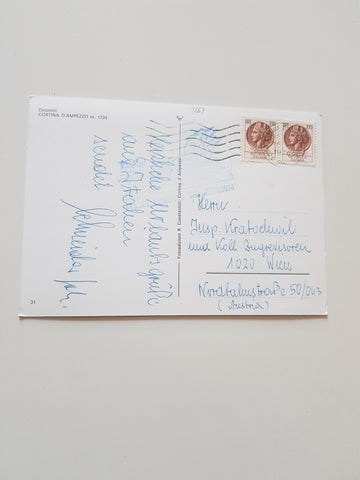 Dolomiti
CORTINA D'AMPEZZO m. 1224
Herzliche Urlaubsgrüße
aus Italien
sendet
Fotoedizioni R. Constantini, Cortina d'Ampezzo
Herrn
Insp. Kratochwil
und Koll. Zugrevisoren
1020 Wien
Nordbahnstraße 50/043
(Austria)
31